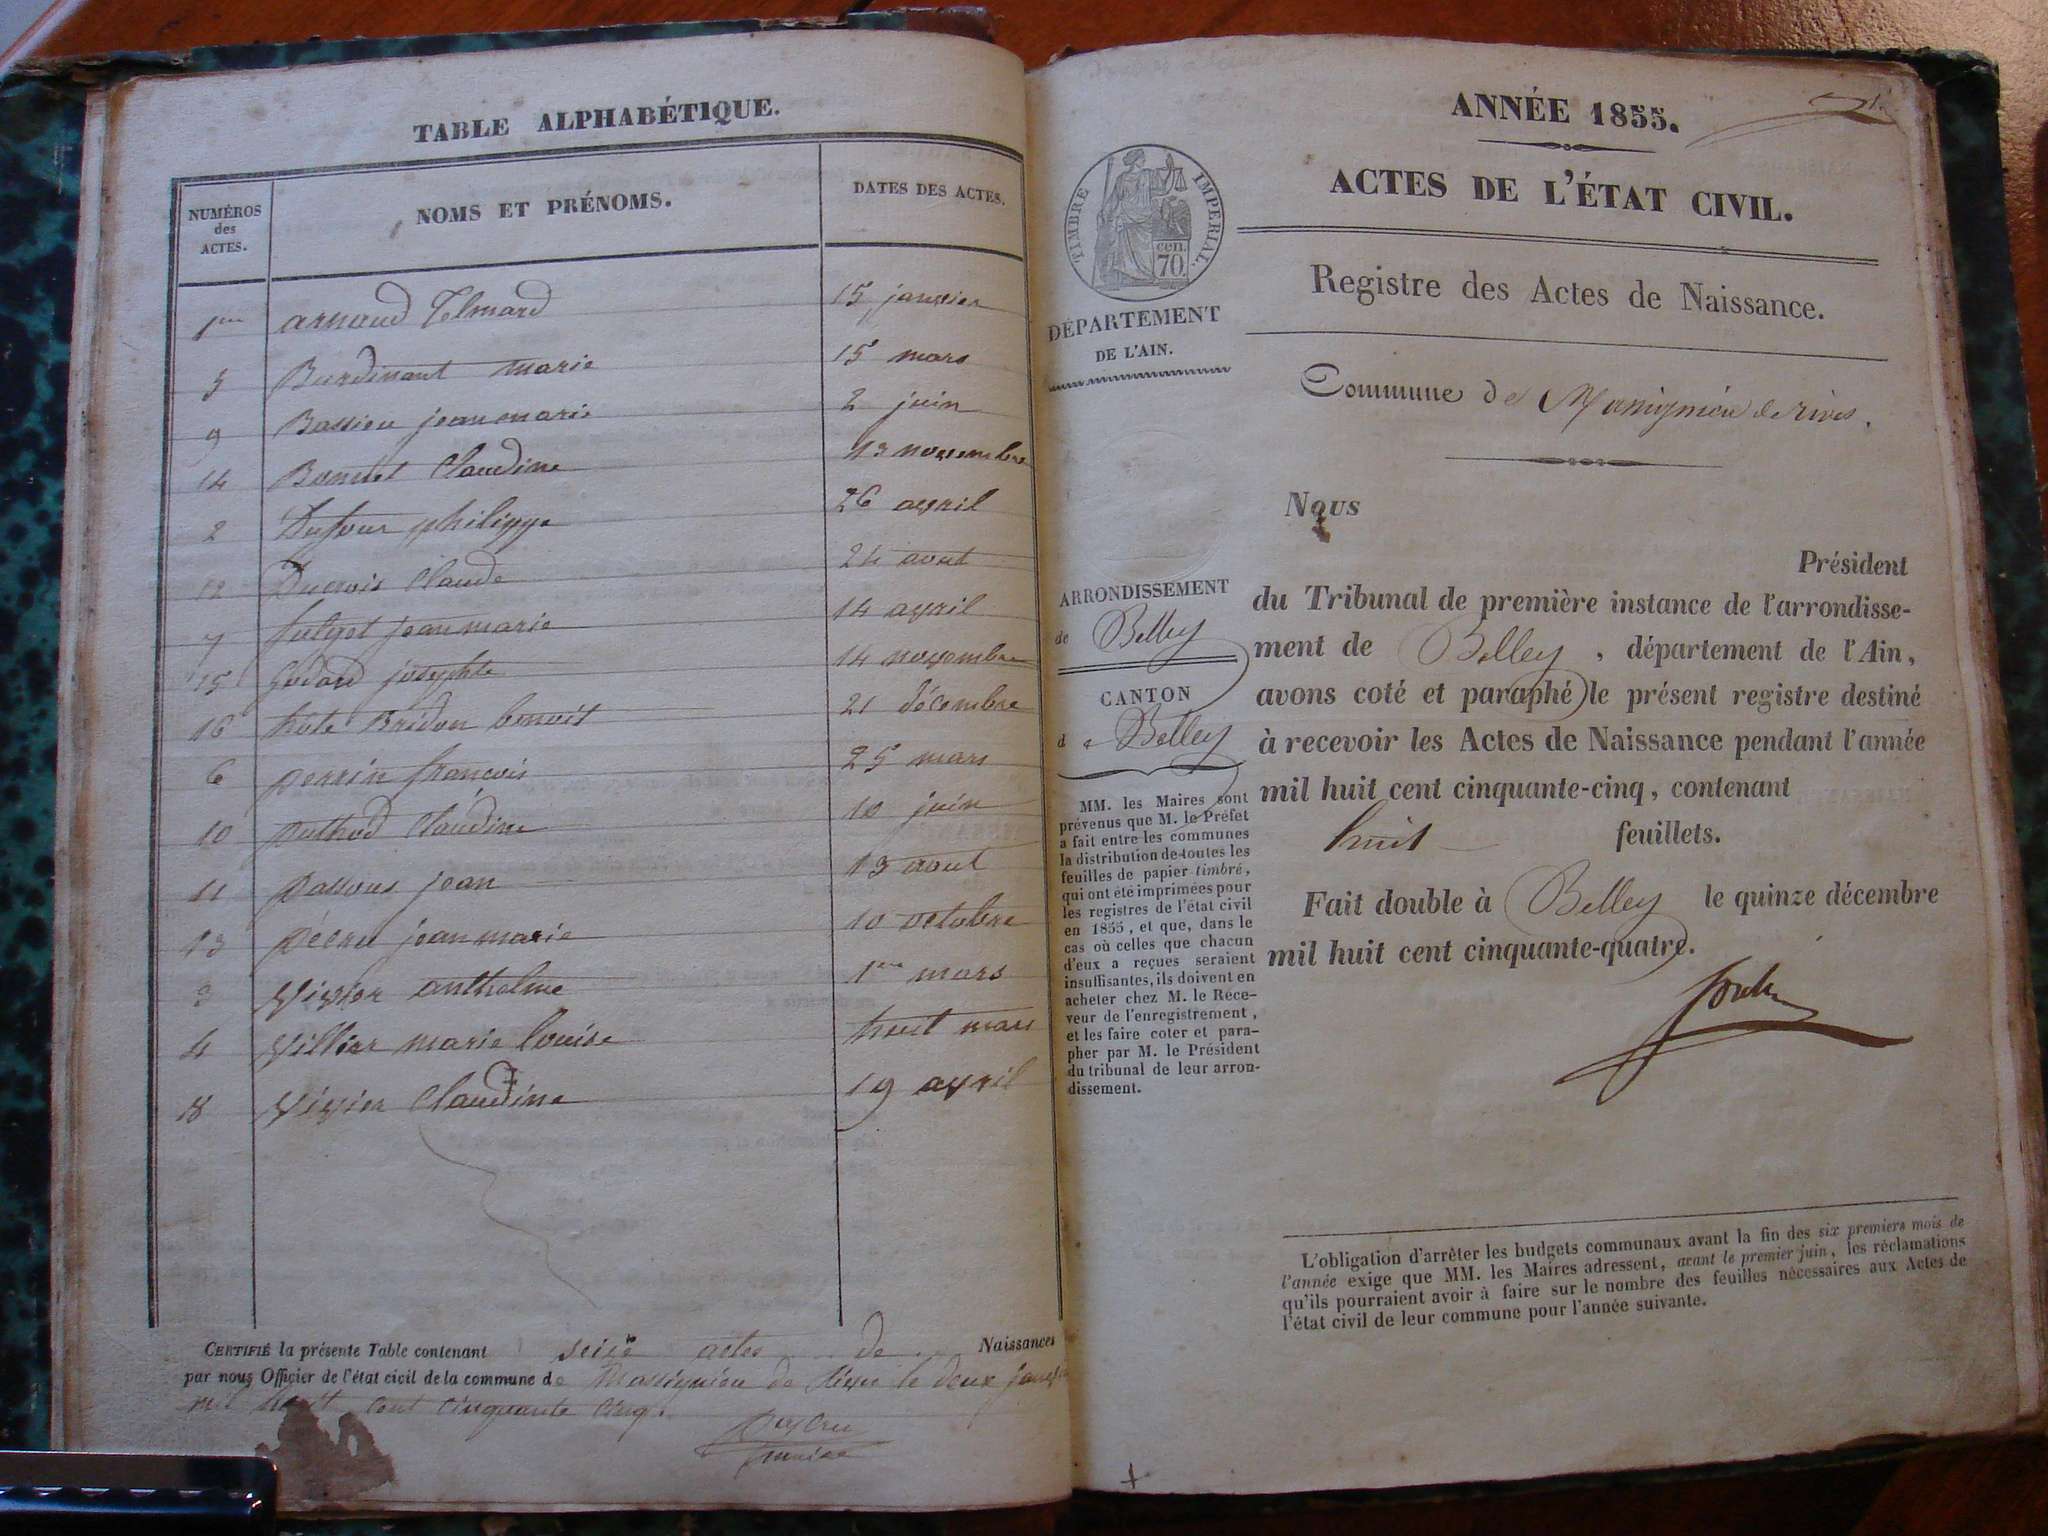 TABLE ALPHABÉTIQUE.
NUMÉROS
des
ACTES.
NOMS ET PRÉNOMS.
DATES DES ACTES.
1er arnaud 15 janvier
5 Burdinant marie 15 mars
9 Bassieu jean marie 2 juin
14 Bonnet Claudine 13 novembre
2 Dufour philippe 26 avril
12 Ducrois Claude 24 aout
7 jean marie 14 avril
15 Godard josephte 14 novembre
16 Bridon benoit 21 décembre
6 perrin françois 25 mars
10 puthod Claudine 10 juin
11 passous jean 13 aout
13 jean marie 10 octobre
3 Vivier anthelme 1er mars
4 Villier marie louise huit mars
18 Vivier Claudine 19 avril
CERTIFIÉ la présente Table contenant seize actes de Naissances
par nous Officier de l'état civil de la commune de Massignieu de Rives le deux janvier
mil huit cent cinquante cinq.
ANNÉE 1855.
ACTES DE L'ÉTAT CIVIL.
Registre des Actes de Naissance.
TIMBRE IMPERIAL.
cen.
70.
DÉPARTEMENT
DE L'AIN.
Commune de Massignieu de rives.
Nous
Président
du Tribunal de première instance de l'arrondisse-
ment de Belley, département de l'Ain,
avons coté et paraphé le présent registre destiné
à recevoir les Actes de Naissance pendant l'année
mil huit cent cinquante-cinq, contenant
huit feuillets.
Fait double à Belley le quinze décembre
mil huit cent cinquante-quatre.
ARRONDISSEMENT
de Belley
CANTON
de Belley
MM. les Maires sont
prévenus que M. le Préfet
a fait entre les communes
la distribution de toutes les
feuilles de papier timbré,
qui ont été imprimées pour
les registres de l'état civil
en 1855, et que, dans le
cas où celles que chacun
d'eux a reçues seraient
insuffisantes, ils doivent en
acheter chez M. le Rece-
veur de l'enregistrement,
et les faire coter et para-
pher par M. le Président
du tribunal de leur arron-
dissement.
L'obligation d'arrêter les budgets communaux avant la fin des six premiers mois de
l'année exige que MM. les Maires adressent, avant le premier juin, les réclamations
qu'ils pourraient avoir à faire sur le nombre des feuilles nécessaires aux Actes de
l'état civil de leur commune pour l'année suivante.